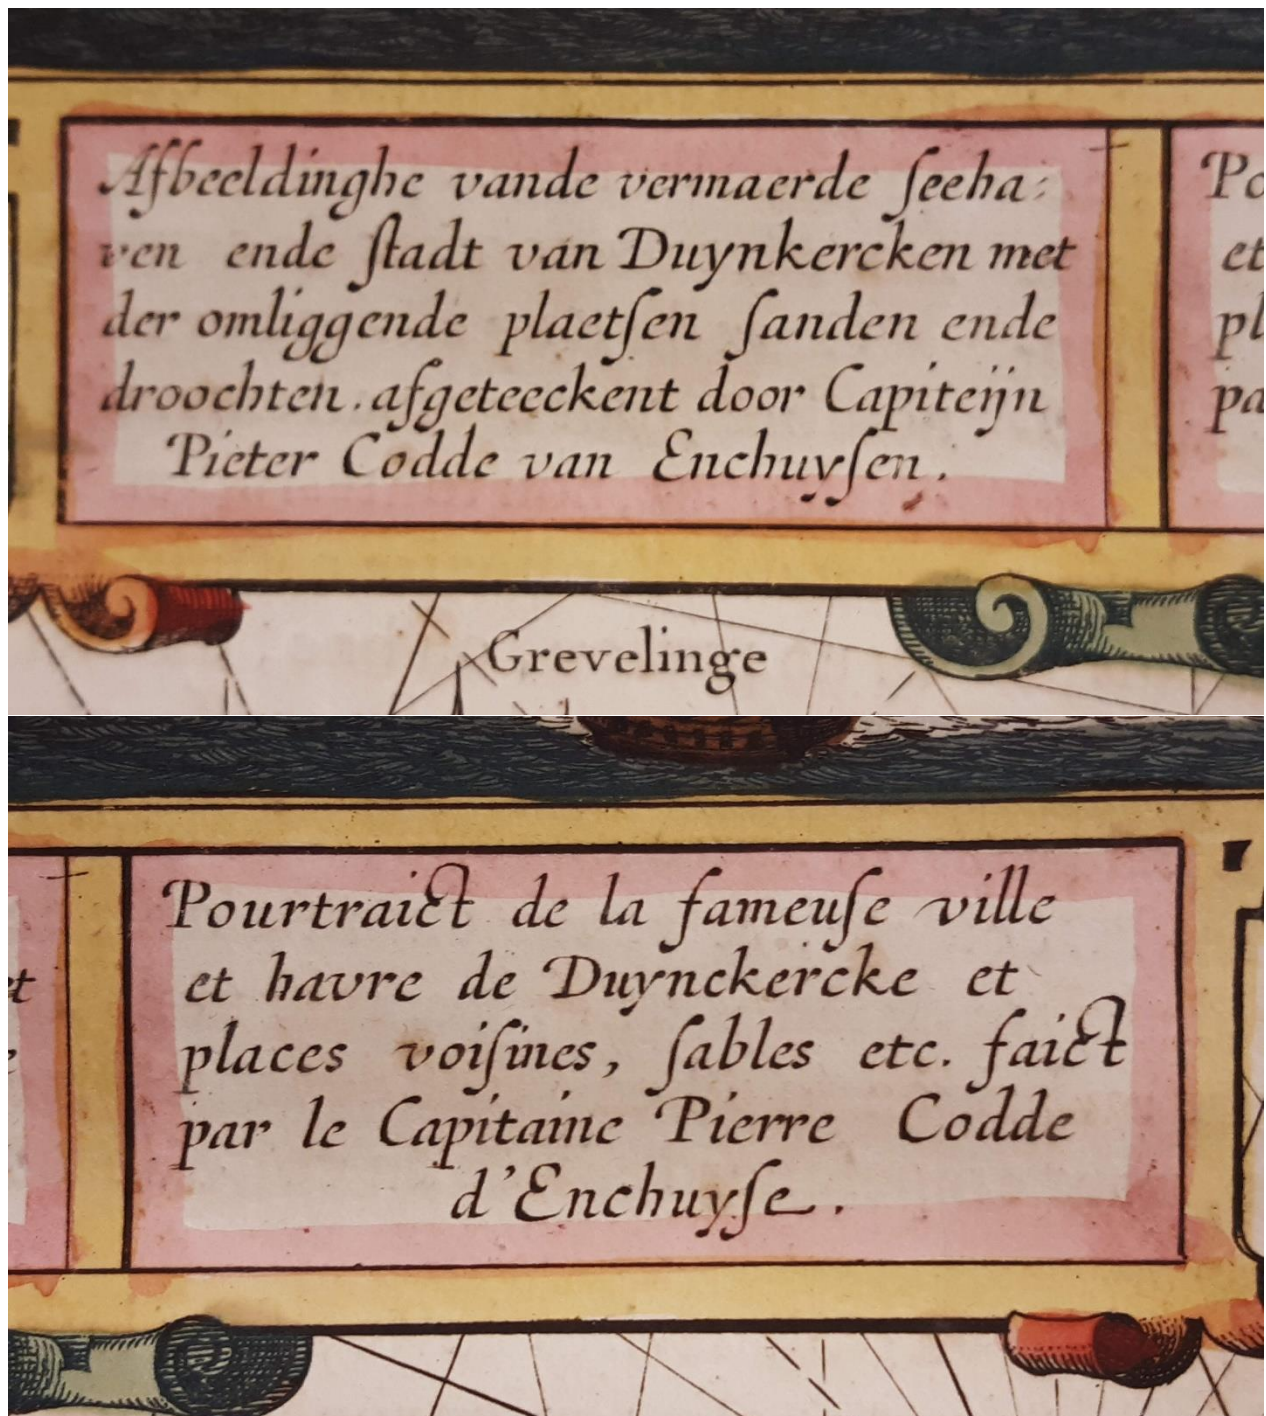 Afbeeldinghe vande vermaerde ſeeha:
ven ende ſtadt van Duynkercken met
der omliggende plaetſen ſanden ende
droochten. afgeteeckent door Capiteijn
Pieter Codde van Enchuyſen.
Grevelinge
Pourtraict de la fameuſe ville
et havre de Duynckercke et
places voiſines, ſables etc. faict
par le Capitaine Pierre Codde
d'Enchuyſe.